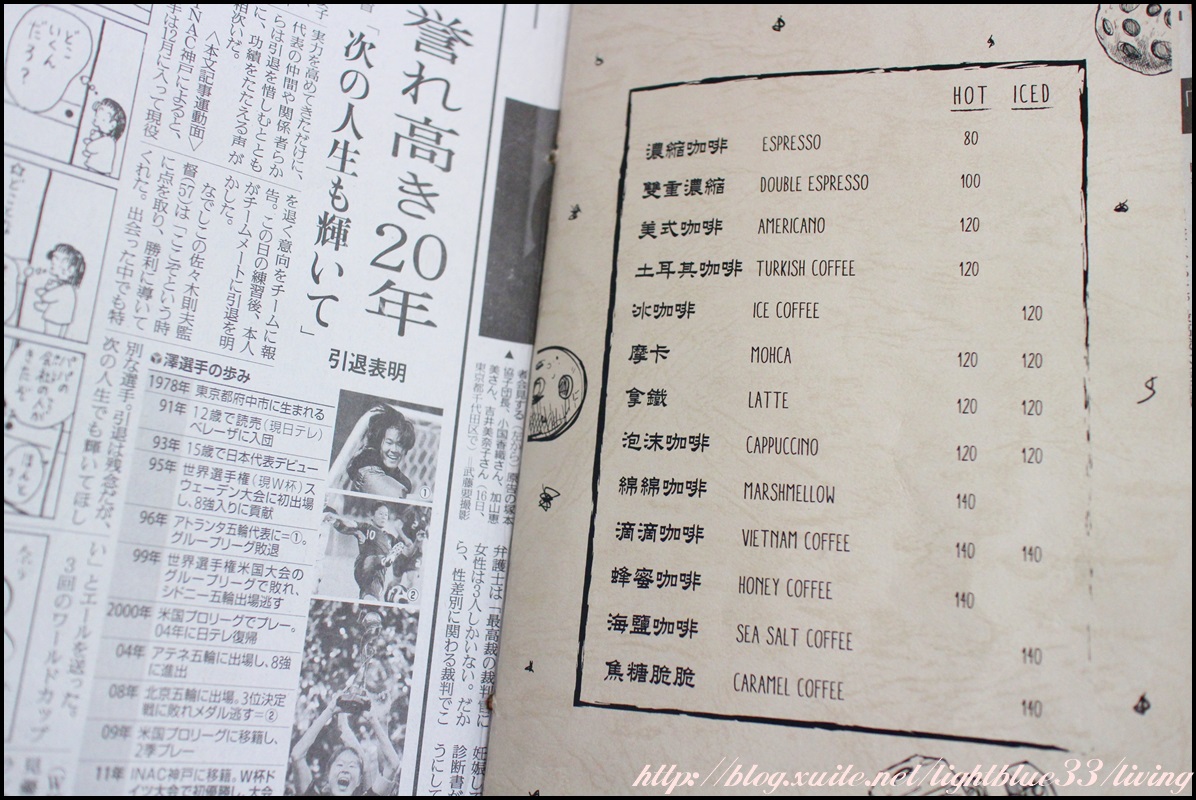 誉れ高き20年
「次の人生も輝いて」
引退表明
実力を高めてきただけに、
代表の仲間や関係者らか
らは引退を惜しむととも
に、功績をたたえる声が
相次いだ。
〈本文記事運動面〉
INAC神戸によると、
手は12月に入って現役
を退く意向をチームに報
告。この日の練習後、本人
がチームメートに引退を明
かした。
なでしこの佐々木則夫監
督(57)は「ここぞという時
に点を取り、勝利に導いて
くれた。出会った中でも特
別な選手。引退は残念だが、
次の人生でも輝いてほし
い」とエールを送った。
3回のワールドカップ
どこ
いくん
だろ?
パパの
会社の人が
きたぞ
澤選手の歩み
1978年 東京都府中市に生まれる
91年 12歳で読売(現日テレ)
ベレーザに入団
93年 15歳で日本代表デビュー
95年 世界選手権(現W杯)ス
ウェーデン大会に初出場
し、8強入りに貢献
96年 アトランタ五輪代表に=①。
グループリーグ敗退
99年 世界選手権米国大会の
グループリーグで敗れ、
シドニー五輪出場逃す
2000年 米国プロリーグでプレー。
04年に日テレ復帰
04年 アテネ五輪に出場し、8強
に進出
08年 北京五輪に出場。3位決定
戦に敗れメダル逃す=②
09年 米国プロリーグに移籍し、
2季プレー
11年 INAC神戸に移籍。W杯ド
イツ大会で初優勝し、大会
①
②
美さん、吉井美奈子さん(16日、
東京都千代田区で)=武藤要撮影
弁護士は「最高裁の裁判官に
女性は3人しかいない。だか
ら、性差別に関わる裁判でこ
妊娠して
診断書が
うにして
HOT ICED
濃縮咖啡 ESPRESSO 80
雙重濃縮 DOUBLE ESPRESSO 100
美式咖啡 AMERICANO 120
土耳其咖啡 TURKISH COFFEE 120
冰咖啡 ICE COFFEE 120
摩卡 MOHCA 120 120
拿鐵 LATTE 120 120
泡沫咖啡 CAPPUCCINO 120 120
綿綿咖啡 MARSHMELLOW 140
滴滴咖啡 VIETNAM COFFEE 140 140
蜂蜜咖啡 HONEY COFFEE 140
海鹽咖啡 SEA SALT COFFEE 140
焦糖脆脆 CARAMEL COFFEE 140
http://blog.xuite.net/lightblue33/living